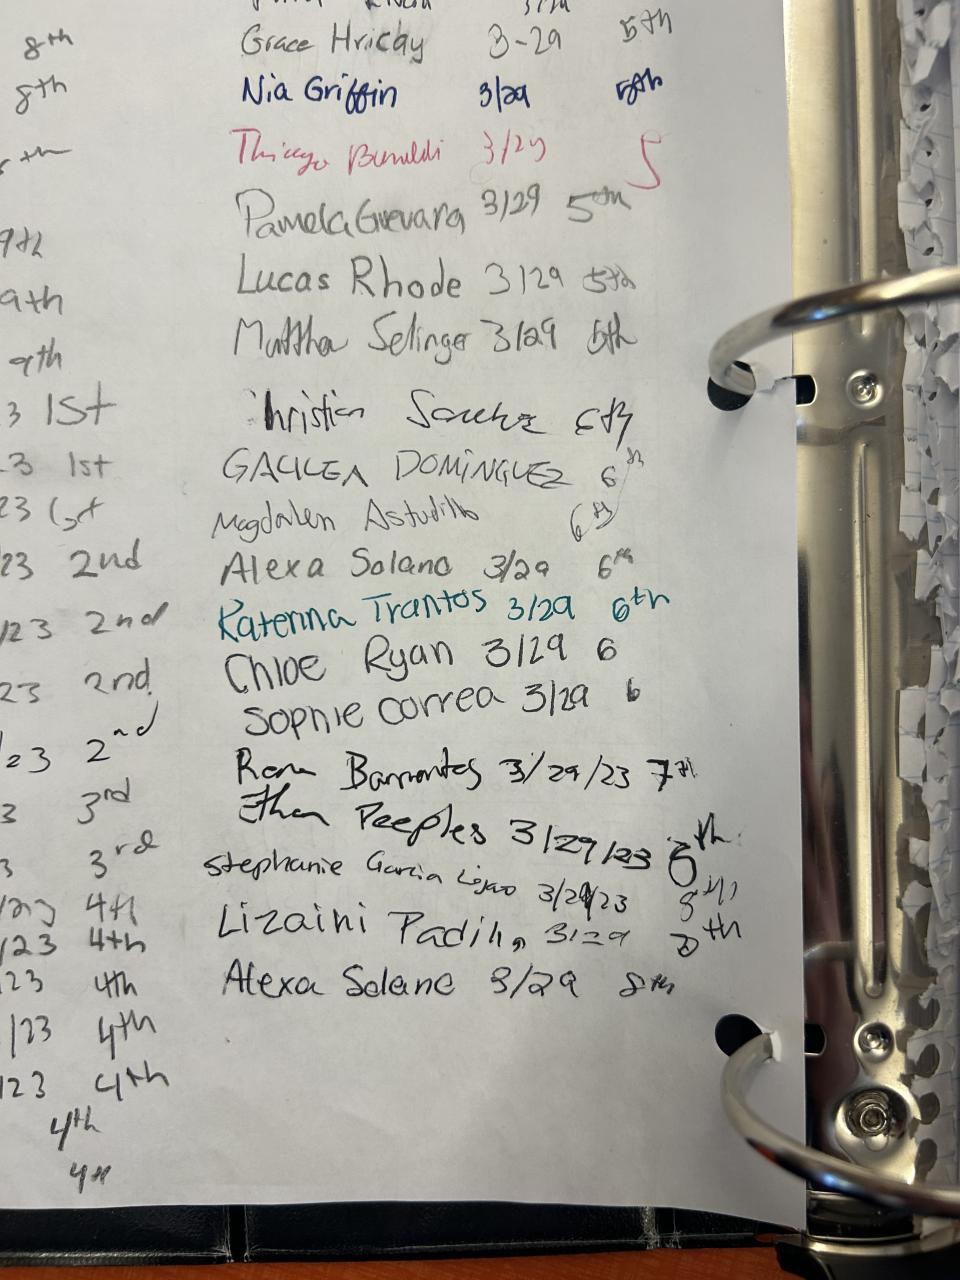 8th
8th
9th
9th
9th
3 1st
23 1st
23 1st
23 2nd
/23 2nd
23 2nd
/23 2nd
3 3rd
3 3rd
4th
/23 4th
23 4th
/23 4th
123 4th
4th
4th
Grace Hricay 3-29 5th
Nia Griffin 3/29 5th
Thiago 3/29 5
Pamela Guevara 3/29 5th
Lucas Rhode 3/29 5th
Matthew Selinger 3/29 5th
Christian 6th
GALILEA DOMINGUEZ 6th
Magdalen Astudillo 6th
Alexa Solano 3/29 6th
Katerina Trantos 3/29 6th
Chloe Ryan 3/29 6
Sophie Correa 3/29 6
Barrantes 3/29/23 7th
Ethan Peeples 3/29/23 8th
Stephanie Garcia 3/29/23 8th
Lizaini Padilla 3/29 8th
Alexa Solano 3/29 8th